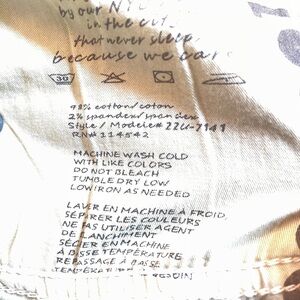 by our NYC
in the cut
that never sleep
because we car
30
98% cotton/coton
2% spandex/spandex
Style / Modele# 22G-7141
RN# 114542
MACHINE WASH COLD
WITH LIKE COLORS
DO NOT BLEACH
TUMBLE DRY LOW
LOW IRON AS NEEDED
LAVER EN MACHINE À FROID,
SÉPARER LES COULEURS
NE PAS UTILISER AGENT
DE BLANCHIMENT
SÉCHER EN MACHINE
À BASSE TEMPÉRATURE
REPASSAGE À BASSE
TEMPÉRATURE